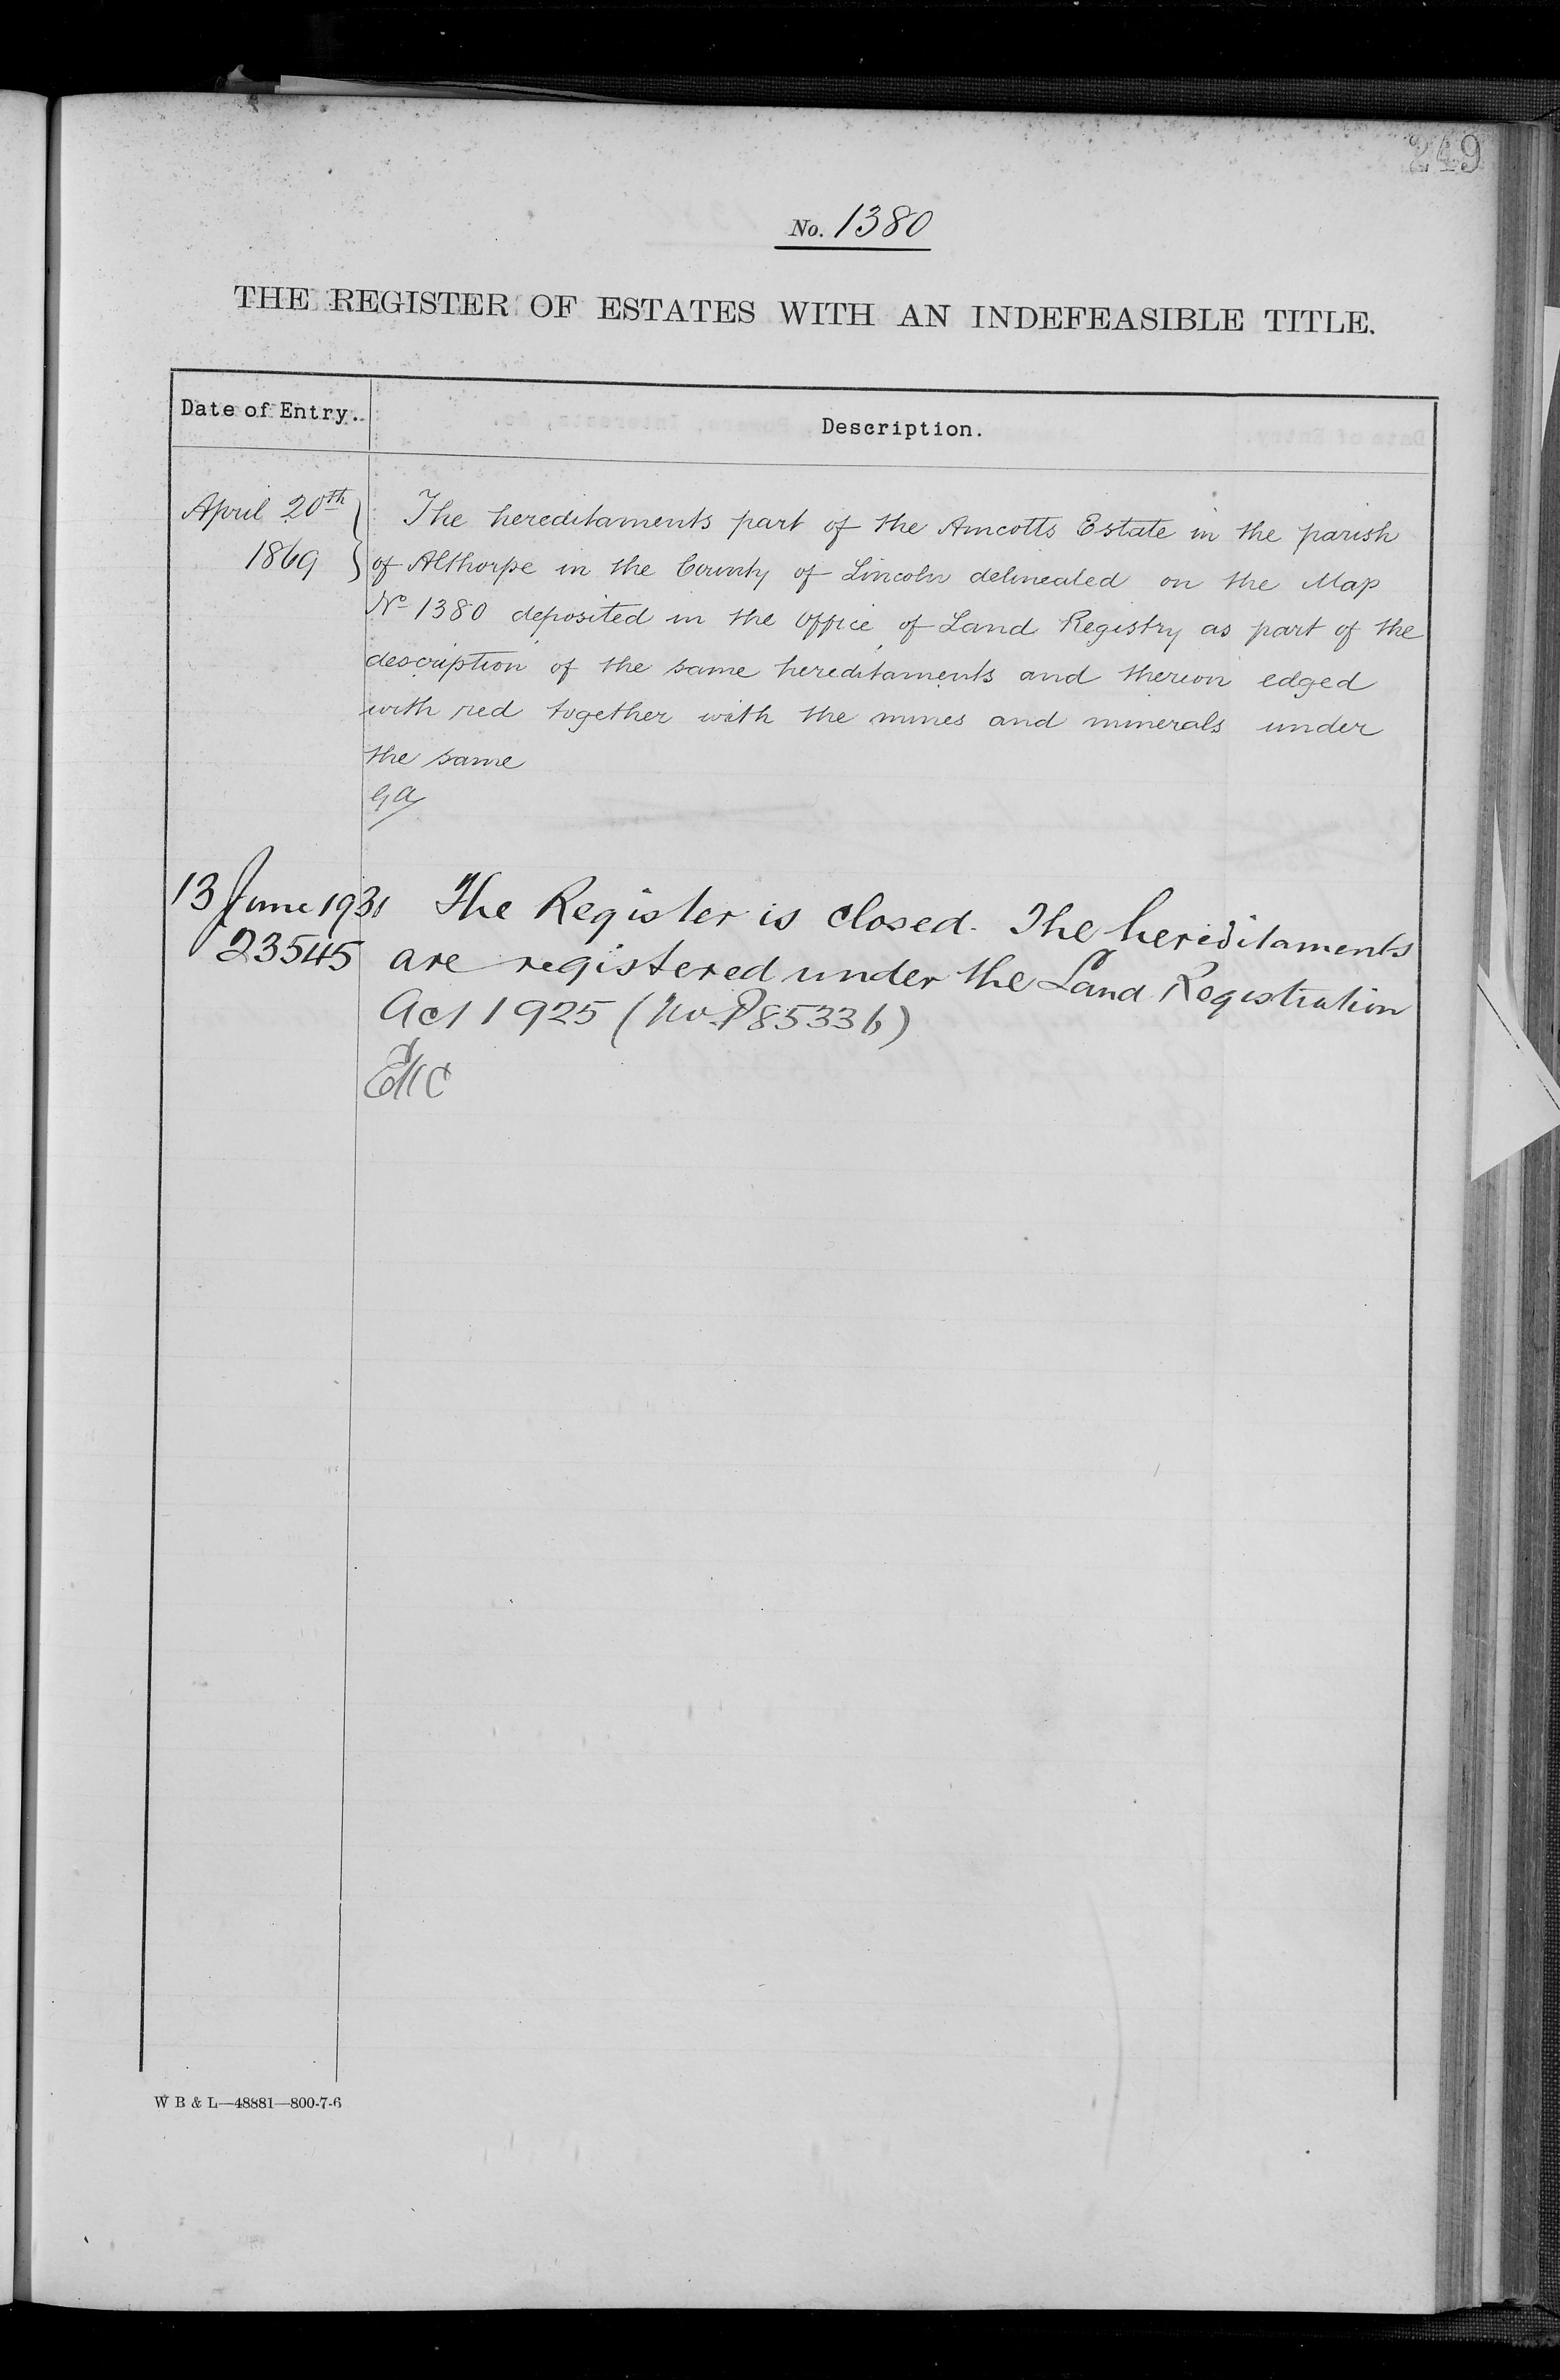 249
No. 1380
THE REGISTER OF ESTATES WITH AN INDEFEASIBLE TITLE.
Date of Entry. Description.
April 20th The hereditaments part of the Amcotts Estate in the parish
1869 of Althorpe in the County of Lincoln delineated on the Map
No 1380 deposited in the Office of Land Registry as part of the
description of the same hereditaments and thereon edged
with red together with the mines and minerals under
the same
GA
13 June 1931 The Register is closed. The hereditaments
23545 are registered under the Land Registration
Act 1925 (No. P85336)
W B & L—48881—800-7-6